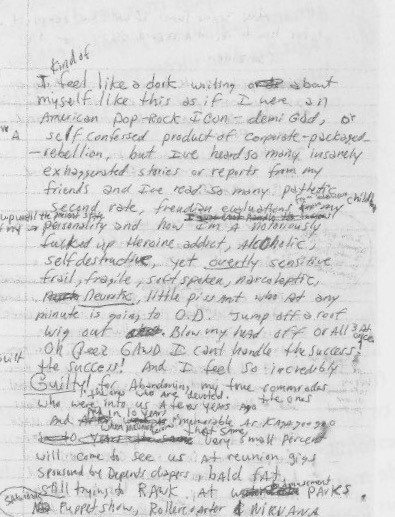 kind of
I feel like a dork writing about
myself like this as if I were an
American pop-Rock Icon-demi God, or
A
self confessed product of corporate-packaged-
-rebellion, but Ive heard so many insanely
exhaggerated stories or reports from my
friends and Ive read so many pathetic
second rate, freudian evaluations from
childhood
up until the present state
of my personality and how I'm a notoriously
fucked up Heroine addict, AlCoholic,
self destructive, yet overtly sensitive
frail, fragile, soft spoken, narcoleptic,
Neurotic, little piss Ant who at any
minute is going to O.D. Jump off a roof
wig out Blow my head off or All 3 At
once.
Oh Geez GAWD I cant handle the success!
the success! And I feel so incredibly
Guilty! for Abandoning my true commrades
the ones who are devoted. the ones
who were into us A few years ago
And in 10 years when
memorable as Kajagoogoo
that same very small percent
will come to see us At reunion gigs
sponsored by Depends diapers, bALd fAt,
still trying to RAWK At Amusement PARKS.
Saturdays
Puppet show, Rollercoaster & NIRVANA